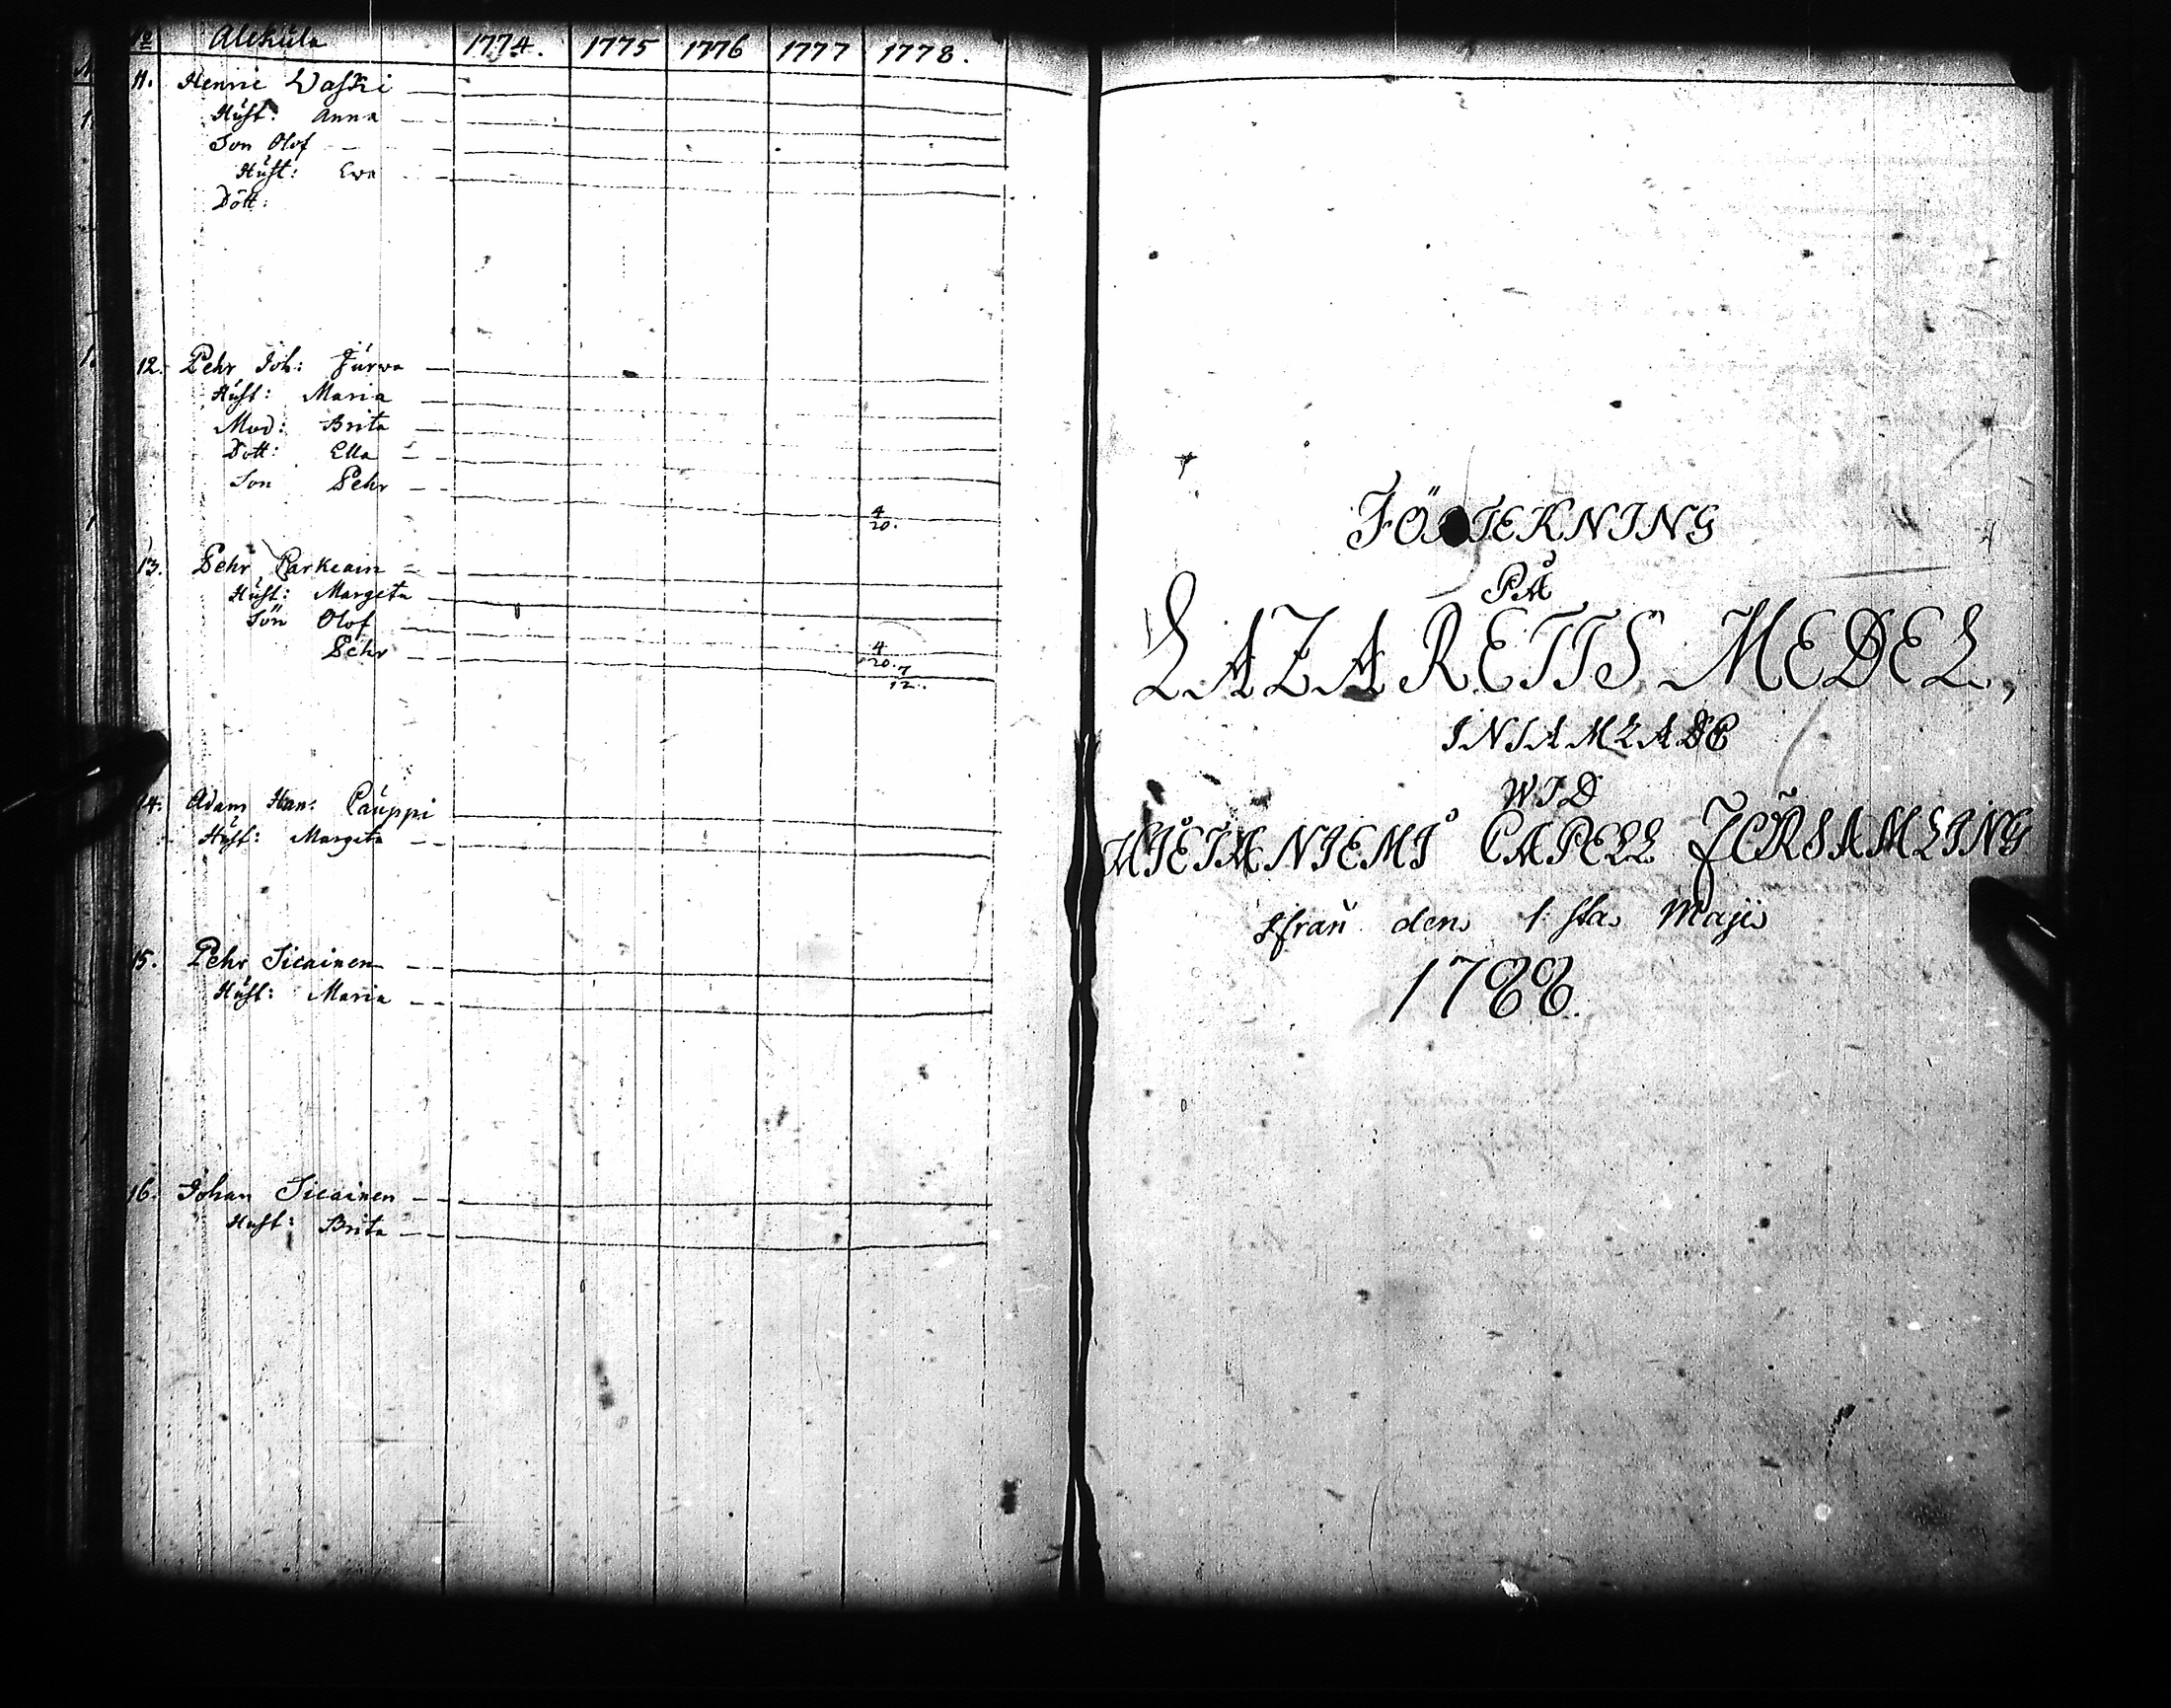 No Alckula 1774. 1775 1776 1777 1778.
11. Henric Waski
Hust: Anna
Son Olof
Hust: Ewa
Dött:
12. Pehr Joh: Jurwa
Hust: Maria
Mod: Brita
Dott: Ella
Son Pehr
4
20.
13. Pehr Parkiain
Hust: Margeta
Sön Olof
Pehr
4
20. 7
12.
14. Adam Han: Pauppi
Hust: Margeta
15. Pehr Sicainen
Hust: Maria
16. Johan Sicainen
Hust: Brita
FÖRTEKNING
PÅ
LAZARETTS MEDEL,
INSAMLADE
WID
HIETANIEMI CAPELL FÖRSAMLING
ifrån den 1:sta Maji
1788.